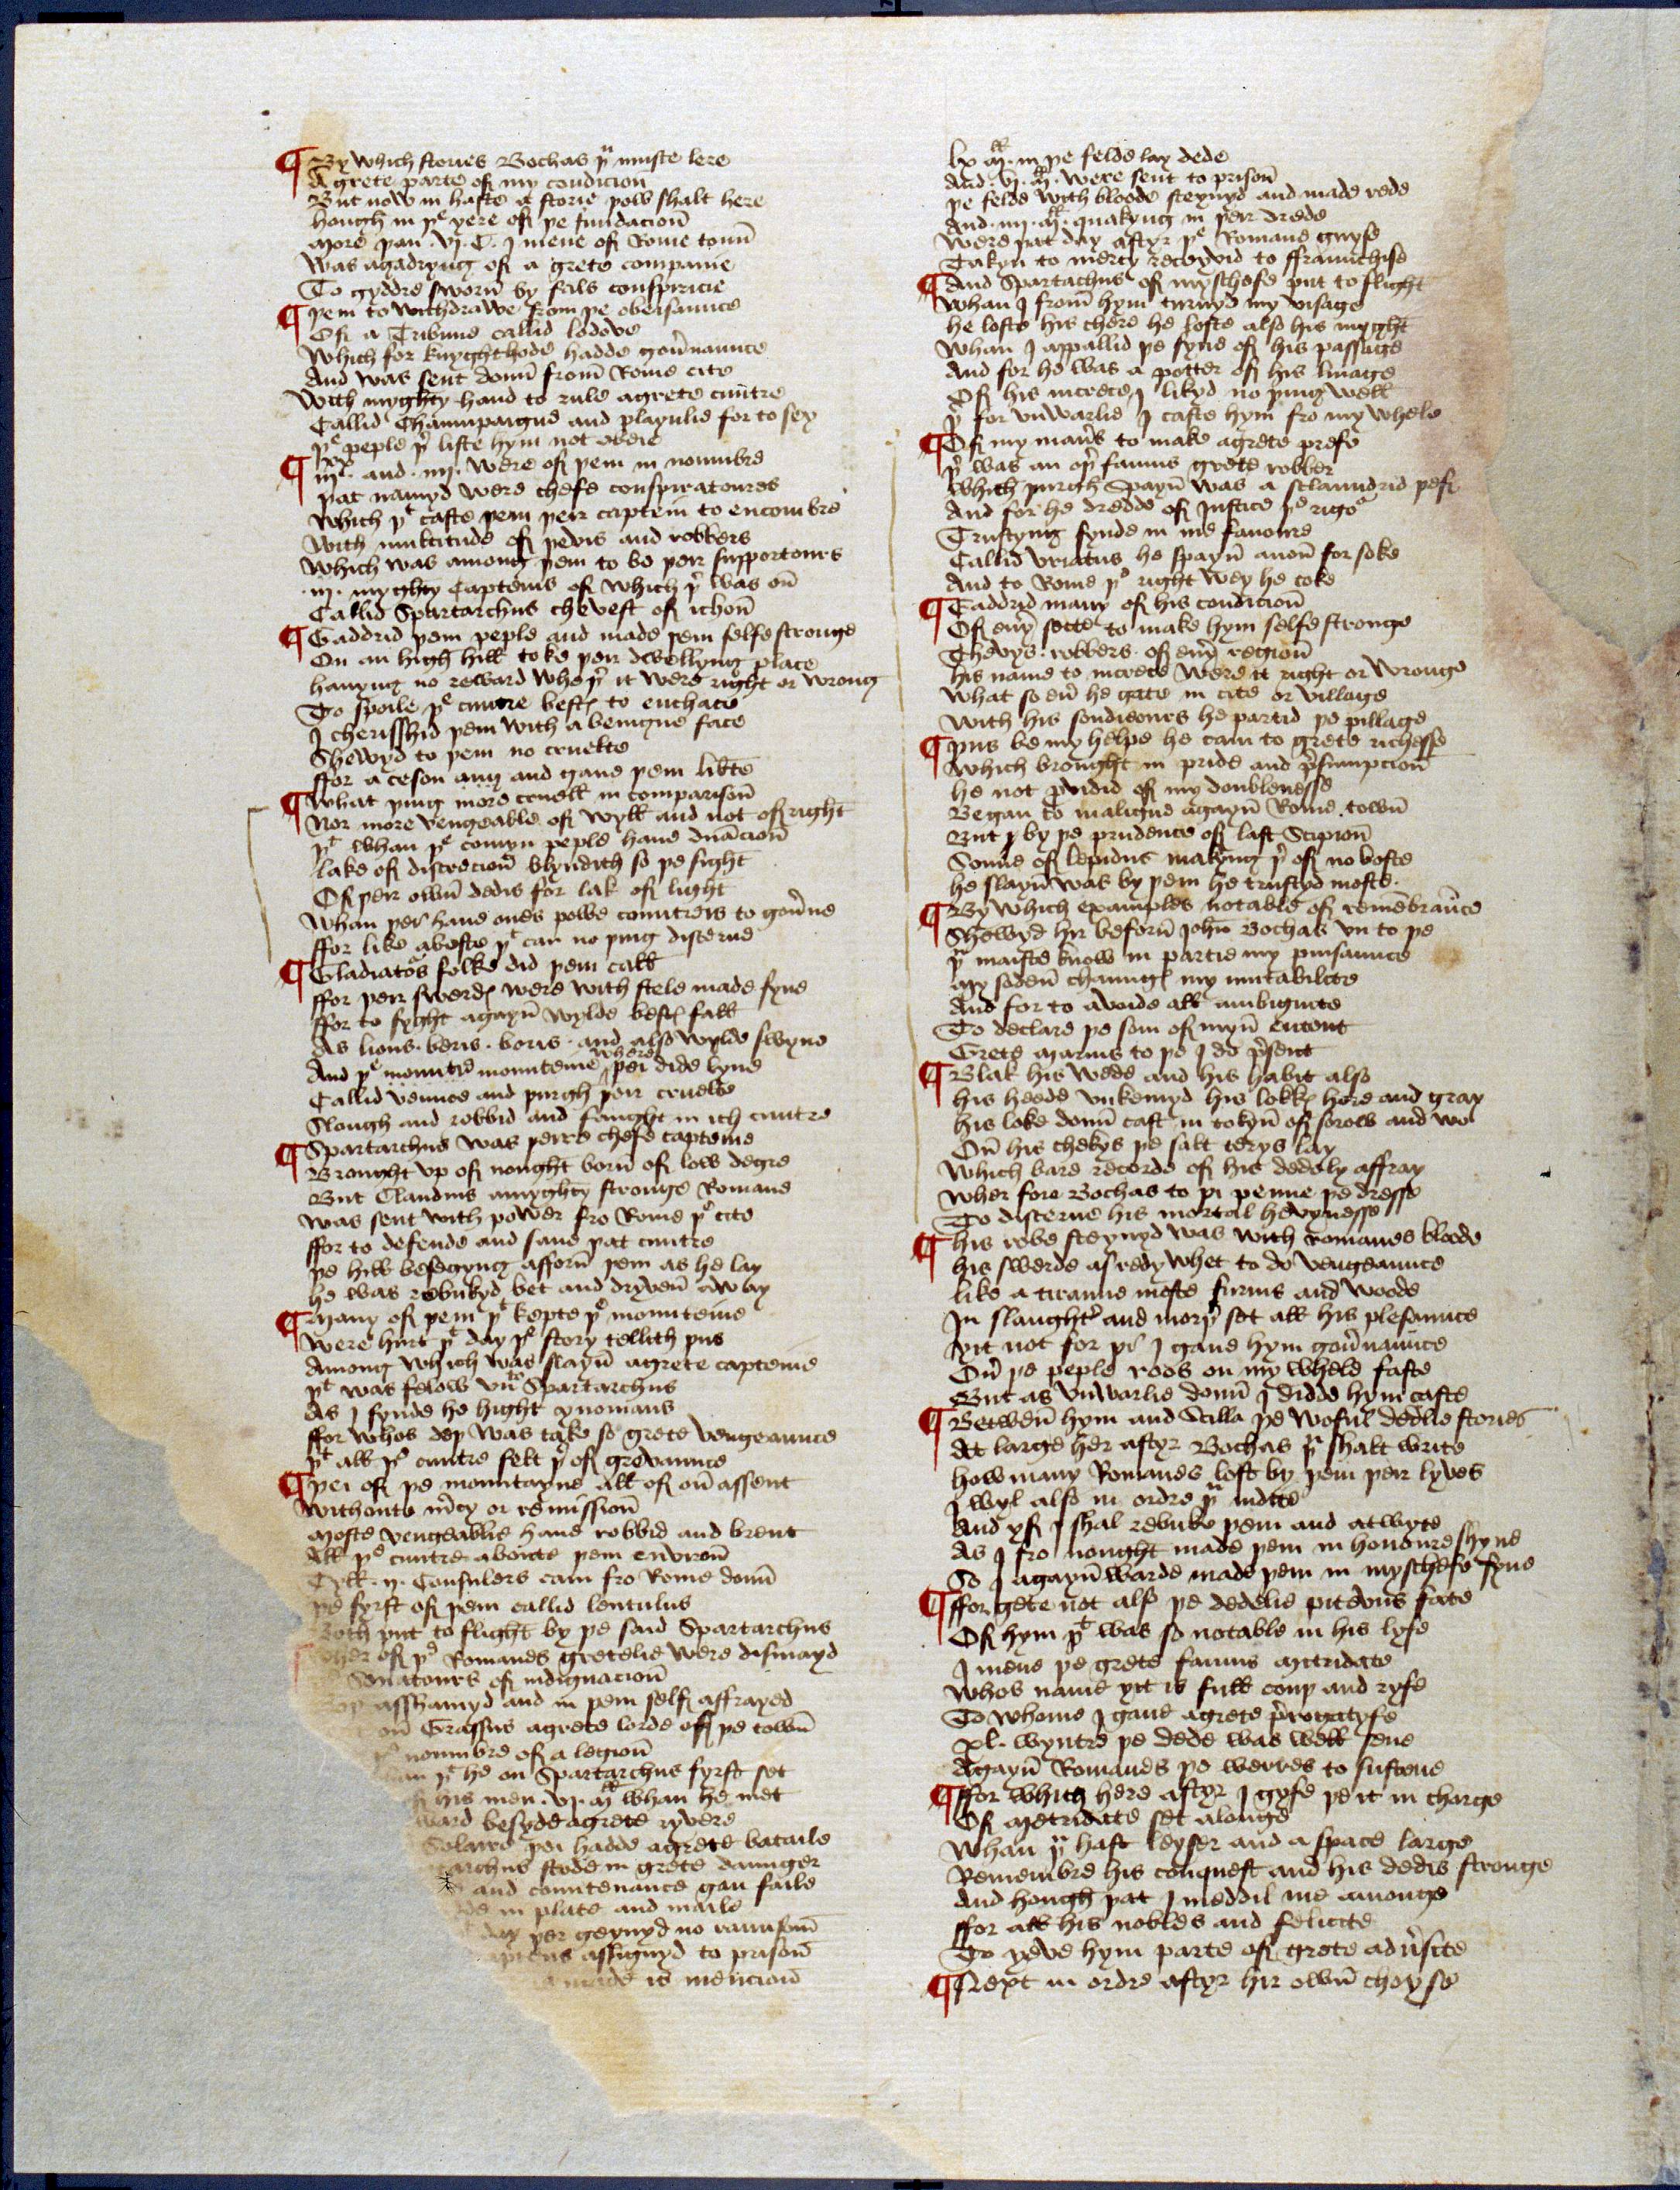 ¶ By which stories Bochas þu muste lere
A grete parte of my condicion̄
But now in haste a storie þow shalt here
hough in þe yere of þe fundacion̄
More þan .vj. C. I mene of Rome toun̄
Was agadryng of a grete companie
To gyddre sworn̄ by fals conspiricie
¶ þem to withdrawe from þe obeisaunce
Of a Tribune callid lodove
Which for knyghthode hadde gou̾naunce
And was sent doun̄ from̄ Rome cite
With myghty hand to rule agrete cuntre
Callid Chaumpaigne and playnlie for to sey
þe peple þ̾ liste hym not obeie
¶ and .iiij. were of þem in noumbre
þat namyd were chefe conspiratoures
Which þt caste þem þeir captein to encombre
With multitude of þevis and robbers
Which was among þem to be þeir supportours
.iij. myghty Capteins of which þ̾ was on̄
Callid Spartarchus chevest of ichon̄
¶ Gaddrid þem peple and made þem selfe stronge
On an high hill toke þeir dwellyng place
hauyng no reward wheþ̾ it were right or wrong
To spoile þe cuntre bestꝭ to enchace
I cherisshid þem with a benigne face
Shewyd to þem no cruelte
ffor a ceson and gaue þem lib̾te
¶ What þing more cruell in comparison̄
Nor more vengeable of wyll and not of right
þt whan þe comyn peple haue dn̄acion̄
lake of discrecion̄ blyndith so þe sight
Of þeir own̄ dedis for lak of light
Whan þei haue ones powe countreis to gou̾ne
ffor like abeste þt can no þing discerne
¶ Gladiatos̾ folke did þem call
ffor þeir swerdꝭ were with stele made fyne
ffor to fyght agayn̄ wylde bestꝭ fall
As lions . beris . boris . and also wylde swyne
And þe mountre mounteine where þei dide lyne
Callid venuce and þurgh þeir cruelte
Slough and robbid and fought in ich cuntre
¶ Spartarchus was þeire chefe capteine
Brought vp of nought born̄ of low degre
But Claudius amyghty stronge Romane
Was sent with power fro Rome þe cite
ffor to defende and saue þat cuntre
þe hill besegyng afforn̄ þem as he lay
he was rebukyd bet and dryven̄ away
¶ Many of þem þt kepte þe mounteine
Were hurt þt day þe story tellith þus
Among which was slayn̄ agrete capteine
þt was felow vnto Spartarchus
As I fynde he hight ynomaus
ffor whos deþ was take so grete vengeaunce
þt all þe cuntre felt þ̾ of grevaunce
¶ þei of þe mountayne all of on̄ assent
Withoute m̾cy or remission̄
Moste vengeablie haue robbid and brent
All þe cuntre aboute þem environ̄
Tyll .ij. Consulers cam fro Rome doun̄
þe fyrst of þem callid lentulus
Both put to flight by þe said Spartarchus
of þe Romanes gretelie were dismayd
Senatours of indignacion̄
asshamyd and in þem self affrayed
on̄ Crassus agrete lorde of þe town̄
noumbre of a legion̄
þt he on Spartarchus fyrst set
his men .vj. Mll whan he met
ward besyde agrete ryvere
þei hadde agrete bataile
archus stode in grete daunger
and countenance gan faile
in plate and maile
day þer geynyd no raunson̄
assignyd to prison̄
made is mencion̄
lx Mll. in þe felde lay dede
And .vj. Mll. were sent to prison̄
þe felde with bloode steynyd and made rede
And .iiij. Mll. quakyng in þeir drede
Were þat day aftyr þe Romane guyse
Takyn to mercy receyvid to ffraunchise
¶ And Spartachus of myschefe put to flight
Whan I from̄ hym turnyd my visage
he loste his chere he loste also his myght
Whan I appallid þe fyne of his passage
And for he was a potter of his linage
Of his increce I likyd no þing well
þ̾ for vnwarlie I caste hym fro my whele
¶ Of my man̾s to make agrete prefe
þ̾ was an oþ̾ famus grete robber
Which þurgh Spayn̄ was a sclaundrid þefe
And for he dredde of Justice þe rigor
Trustyng fynde in me favoure
Callid vriatus he spayn̄ anon̄ forsoke
And to Rome þe right wey he toke
¶ Gaddrid many of his condicion̄
Of eu̾y secte to make hym selfe stronge
Thevys . robbers . of eu̾y region̄
his name to increce were it right or wronge
What so eu̾ he gate in cite or village
With his soudieours he partid þe pillage
¶ þus be my helpe he cam to grete richesse
Which brought in pride and p̾sumpcion̄
he not p̾vidid of my doublenesse
Began to maligne agayn̄ Rome town̄
But by þe prudence of last Scipion̄
Sonne of lepidus makyng þ̾ of no boste
he slayn̄ was by þem he trustyd moste
¶ By which examples notable of remembrau̅ce
Shewyd hir beforn̄ John̄ Bochas vn to þe
þu maiste know in partie my puisaunce
My soden̄ chaungꝭ my mutabilite
And for to avoide all ambiguite
To declare þe som of myn̄ entent
Grete Marius to þe I do p̾sent
¶ Blak his wede and his habit also
his heede vnkemyd his lokkꝭ hore and gray
his loke doun̄ cast in tokyn̄ of sorow and wo
On̄ his chekys þe salt terys lay
Which bare recorde of his dedely affray
Wher fore Bochas to þi penne þe dresse
To discerne his mortal hevynesse
¶ his robe steynyd was with romanes bloode
his swerde as redy whet to do vengeaunce
like a tiraune moste furius and woode
In slaught̾ and morþ̾ set all his plesaunce
yit not for þt I gaue hym gou̾naunce
Ou̾ þe peple roos on my whele faste
But as vnwarlie doun̄ I didde hym caste
¶ Betwen̄ hym and Scilla þe woful dedlie stories
At large her aftyr Bochas þu shalt write
how many Romanes lost by þem þeir lyves
I wyl also in ordre þu indite
And yf I shal rebuke þem and atwyte
As I fro nought made þem in honoure shyne
So I agayn̄warde made þem in myschefe fyne
¶ ffor gete not also þe dedelie pitevous fate
Of hym þt was so notable in his lyfe
I mene þe grete famus Mitridate
Whos name yit is full couþ and ryfe
To whome I gaue agrete p̾rogatyfe
xl. wyntre þe dede was well sene
Agayn̄ Romanes þe werres to sustene
¶ ffor which here aftyr I gyfe þe it in charge
Of Metridate set alonge
Whan þu hast leyser and a space large
Remembre his conquest and his dedis stronge
And hough þat I meddil me amonge
ffor all his nobles and felicite
To yeve hym parte of grete adu̾site
¶ Next in ordre aftyr hir own̄ choyse